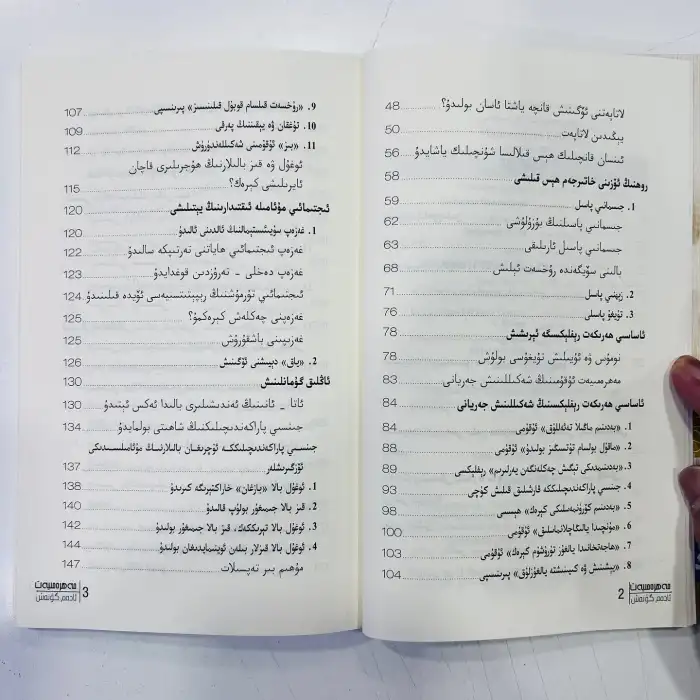 لاتاپەتنى ئۆگىنىش قانچە ياشتا ئاسان بولىدۇ؟ 48
يېڭىدىن لاتاپەت 50
ئىنسان قانچىلىك ھېس قىلالسا شۇنچىلىك ياشايدۇ 56
روھنىڭ ئۆزىنى خاتىرجەم ھېس قىلىشى 58
1. جىسمانىي پاسىل 59
جىسمانىي پاسىلنىڭ بۇزۇلۇشى 62
جىسمانىي پاسىل ئارىلىقى 63
بالىنى سۆيگەندە رۇخسەت ئېلىش 68
2. زېھنىي پاسىل 71
3. تۇيغۇ پاسلى 76
ئاساسىي ھەرىكەت رېفلېكسىگە ئېرىشىش 78
نومۇس ۋە ئۇيىلىش تۇيغۇسى بولۇش 78
مەھرەمىيەت ئۇقۇمىنىڭ شەكىللىنىش جەريانى 83
ئاساسىي ھەرىكەت رېفلېكسىنىڭ شەكىللىنىش جەريانى 84
1. «بەدىنىم ماڭىلا تەئەللۇق» ئۇقۇمى 84
2. «ماقۇل بولسام تۇتسىڭىز بولىدۇ» ئۇقۇمى 88
3. «بەدىنىمدىكى تېگىش چەكلەنگەن يەرلىرىم» رېفلېكسى 89
4. جىنسىي پاراكەندىچىلىككە قارشىلىق قىلىش كۈچى 93
5. «بەدىنىم كۆرۈنمەسلىكى كېرەك» ھېسسى 98
6. «مۇنچىدا يالىڭاچلانماسلىق» ئۇقۇمى 100
7. «ھاجەتخانىدا يالغۇز تۇرۇشۇم كېرەك» ئۇقۇمى 103
8. «يېشىنىش ۋە كىيىنىشتە يالغۇزلۇق» پىرىنسىپى 104
2
مەھرەمىيەت
ئادەم گۈنەش
9. «رۇخسەت قىلسام قوبۇل قىلىنىسىز» پىرىنسىپى 107
10. تۇغقان ۋە يېقىننىڭ پەرقى 109
11. «بىز» ئۇقۇمىنى شەكىللەندۈرۈش 112
ئوغۇل ۋە قىز بالىلارنىڭ ھۇجرىلىرى قاچان
ئايرىلىشى كېرەك؟ 115
ئىجتىمائىي مۇئامىلە ئىقتىدارىنىڭ يېتىلىشى 120
1. غەزەپ سۇيىئىستېمالنىڭ ئالدىنى ئالىدۇ 120
غەزەپ ئىجتىمائىي ھاياتنى تەرتىپكە سالىدۇ 122
غەزەپ دەخلى - تەرۇزدىن قوغدايدۇ 123
ئىجتىمائىي تۇرمۇشنىڭ رېپېتىتسىيەسى ئۆيدە قىلىنىدۇ 124
غەزەپنى چەكلەش كېرەكمۇ؟ 125
غەزىپىنى باشقۇرۇش 125
2. «ياق» دېيىشنى ئۆگىنىش 126
ئاڭلىق گۇمانلىنىش 130
ئاتا - ئانىنىڭ ئەندىشىلىرى بالىدا ئەكس ئېتىدۇ 130
جىنسىي پاراكەندىچىلىكنىڭ شاھىتى بولمايدۇ 134
جىنسىي پاراكەندىچىلىككە ئۇچرىغان بالىلارنىڭ مۇئامىلىسىدىكى
ئۆزگىرىشلەر 137
1. ئوغۇل بالا «ياۋغان» خاراكتېرىگە كىرىدۇ 138
2. قىز بالا جىمىغۇر بولۇپ قالىدۇ 140
3. ئوغۇل بالا تېرىككەك، قىز بالا جىمىغۇر بولىدۇ 142
4. ئوغۇل بالا قىزلار بىلەن ئوينىمايدىغان بولىدۇ 144
مۇھىم بىر تەپسىلات 147
3
مەھرەمىيەت
ئادەم گۈنەش